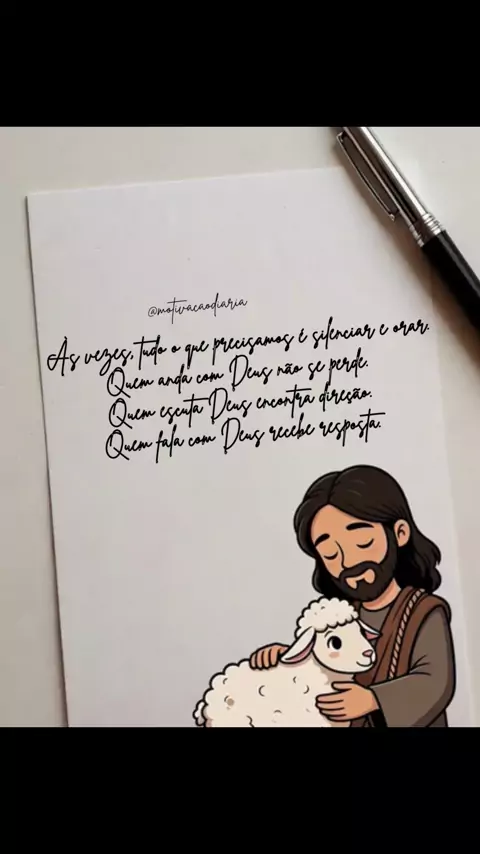 @motivacaodiaria
Às vezes, tudo o que precisamos é silenciar e orar.
Quem anda com Deus não se perde.
Quem escuta Deus encontra direção.
Quem fala com Deus recebe resposta.